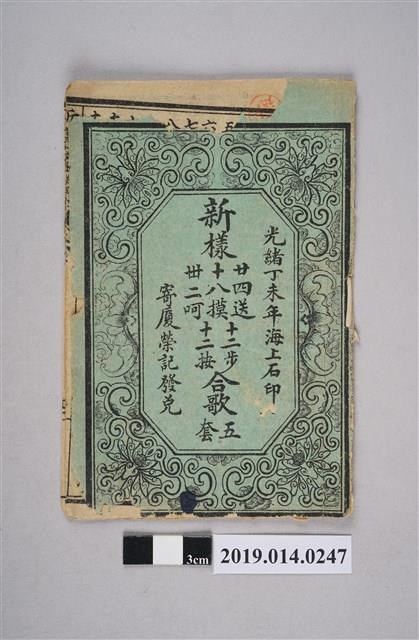 五六七八
光緒丁未年海上石印
新樣
廿四送十二步
十八摸
卅二呵十二按
合歌五套
寄廈榮記發兌
2019.014.0247
3cm